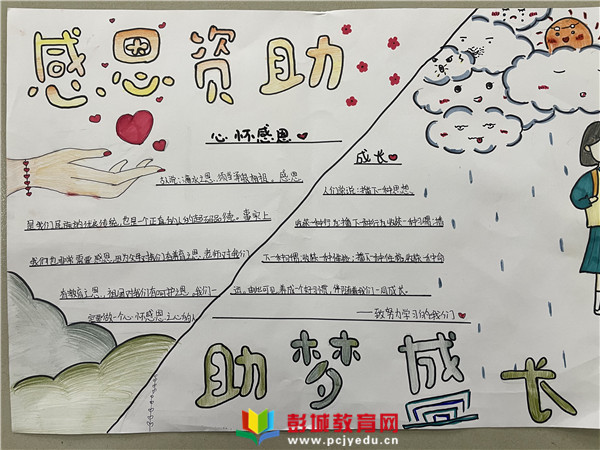 感恩资助
心怀感恩
引说:滴水之恩,须当涌泉相报。感恩
是我们民族的优良传统,也是一个正直的人的起码品德。事实上
我们也非常需要感恩,因为父母对我们有养育之恩,老师对我们
有教育之恩,祖国对我们有呵护之恩。我们一
定要做一个心怀感恩之心的人
成长
人们常说:播下一种思想,
收获一种行为;播下一种行为,收获一种习惯;播
下一种习惯,收获一种性格;播下一种性格,收获一种命
运。由此可见,养成一个好习惯,伴随着我们一同成长。
——致努力学习的我们
助梦成长
彭城教育网
www.pcjyedu.cn